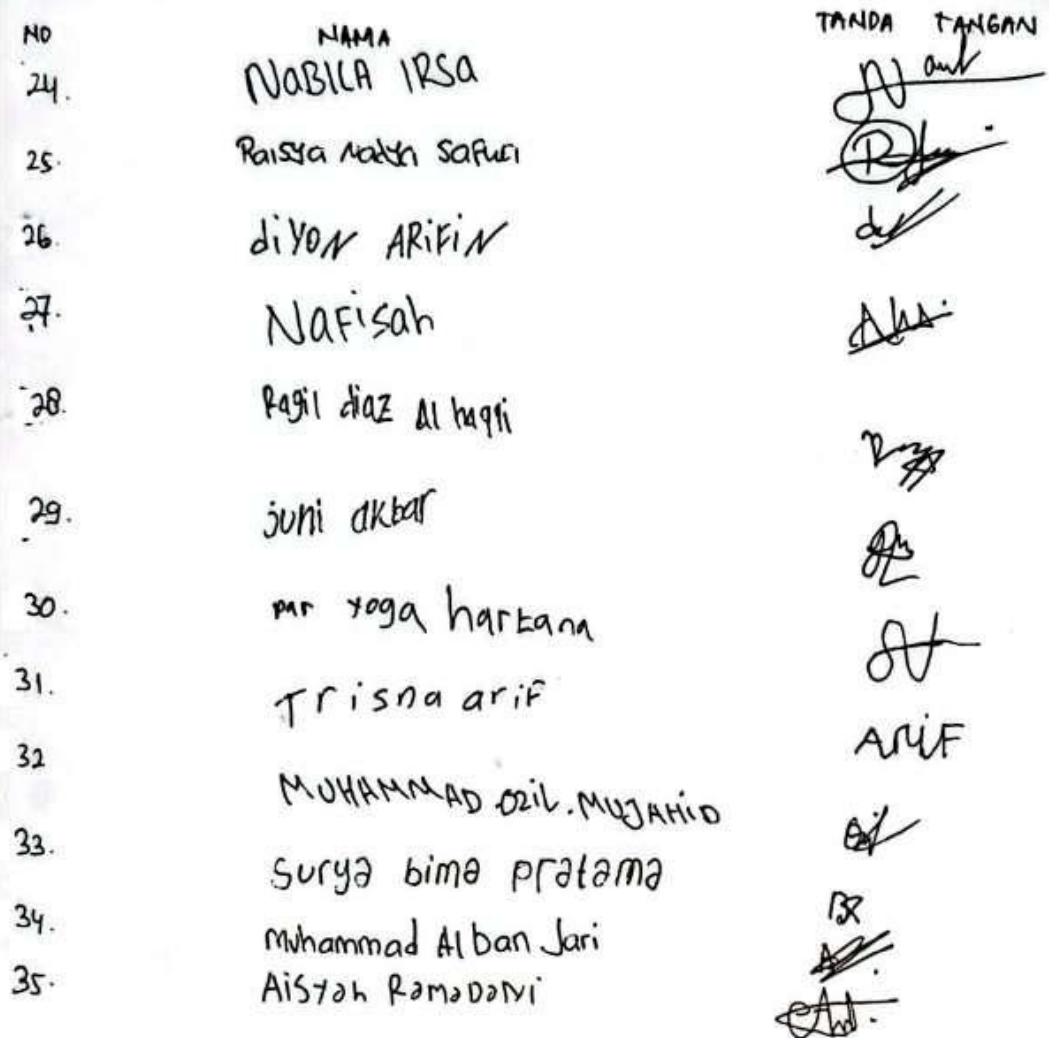 NO NAMA TANDA TANGAN
24. NABILA IRSA
25. Raisya Nadya Safuri
26. diYON ARiFiN
27. NaFisah
28. Ragil diaz Al haqqi
29. juni akbar
30. yoga hartana
31. Trisna arif
32 ARiF
MUHAMMAD .OZiL. MUJAHiD
33.
Surya bima pratama
34. BR
Muhammad Al ban Jari
35. AiSYah RamaDaNi